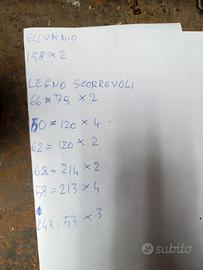 ELLUMNIO
158 × 2
LEGNO SCORREVOLI
66 = 79 × 2
60 = 120 × 4
62 = 120 × 2
68 = 214 × 2
58 = 213 × 4
243 = 53 × 3
subito